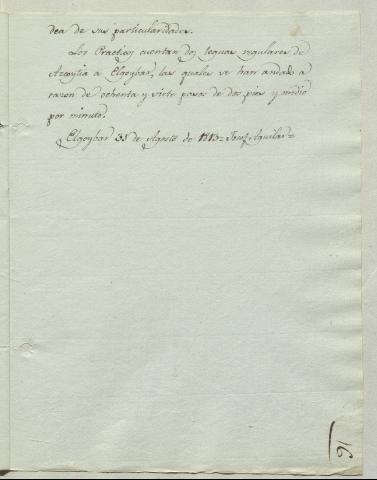 dea de sus particularidades.
Los Practicos cuentan dos leguas regulares de
Azcoytia á Elgoybar, las quales se han andado a
razon de ochenta y siete pasos de dos pies y medio
por minuto.
Elgoybar 31 de Agosto de 1813= Josef Aguilar=
91